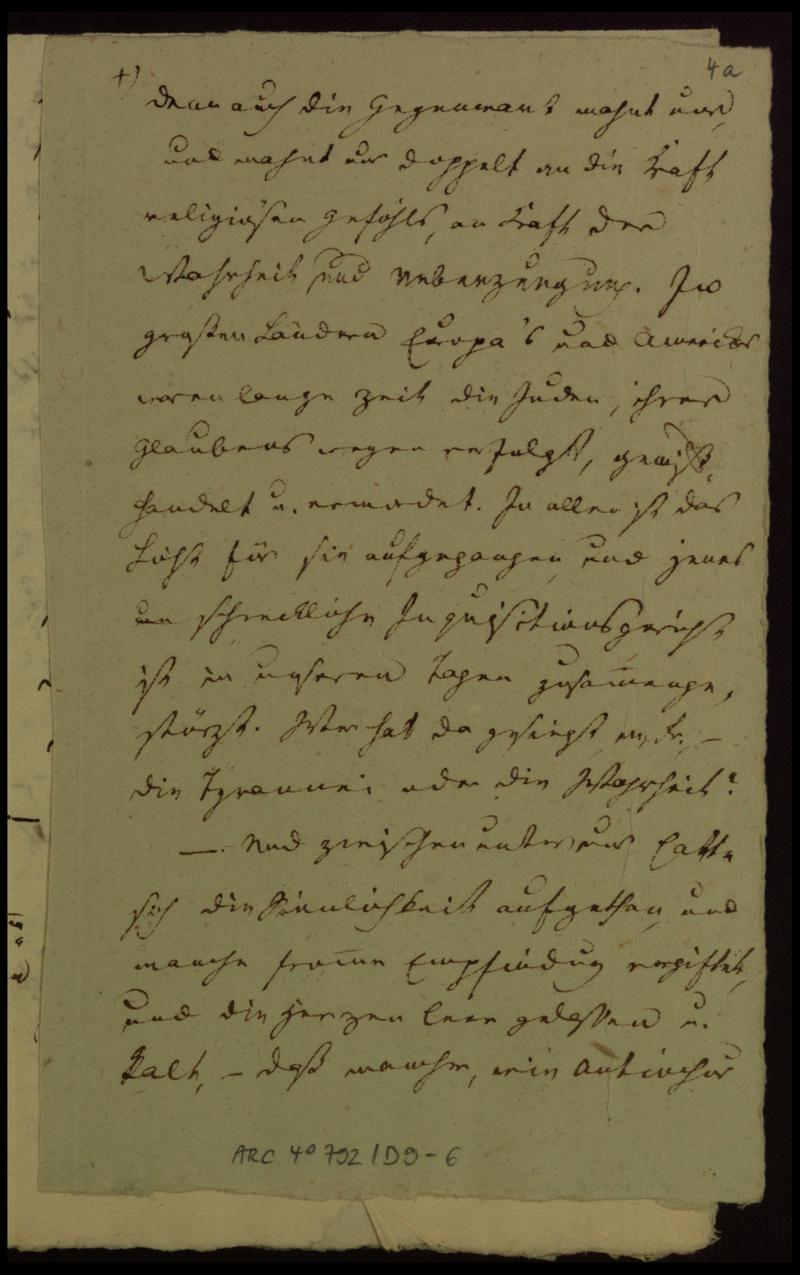 4a
+) denn auch die Gegenwart mahnt uns,
und mahnt uns doppelt an die Kraft
religiösen Gefühls, an Kraft der
Wahrheit und Ueberzeugung. In
großen Ländern Europa's und Americas
waren lange Zeit die Juden, ihres
Glaubens wegen verfolgt, gemiß-
handelt u. ermordet. In allen ist das
Licht für sie aufgegangen und jenes
schreckliche Inquisitionsgericht
ist in unseren Tagen zusam̄enge-
stürzt. Wer hat da gesiegt, –
die Tyrannei oder die Wahrheit?
—. Und zwischen unter uns hatte
sich die Sinnlichkeit aufgethan und
manche from̄e Empfindung vergiftet,
und die Herzen leer gelassen u.
kalt, – daß mancher, wie Antiochus
ARC 4° 792 / D9 - 6